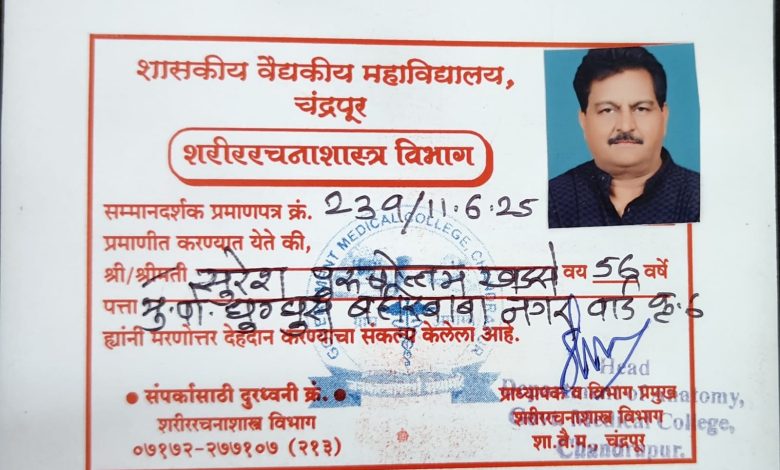 शासकीय वैद्यकीय महाविद्यालय,
चंद्रपूर
शरीररचनाशास्त्र विभाग
सम्मानदर्शक प्रमाणपत्र क्रं. 239/11.6.25
प्रमाणीत करण्यात येते की,
श्री/श्रीमती सुरेश पुरुषोत्तम खडसे वय 56 वर्षे
पत्ता मु.पो. घुग्घुस बहादे बाबा नगर वार्ड कृ. 6
ह्यांनी मरणोत्तर देहदान करण्याचा संकल्प केलेला आहे.
• संपर्कासाठी दुरध्वनी क्रं. •
शरीररचनाशास्त्र विभाग
०७१७२-२७७१०७ (२१३)
Head
Department of Anatomy,
Medical College,
Chandrapur.
प्राध्यापक व विभाग प्रमुख
शरीररचनाशास्त्र विभाग
शा.वै.म., चंद्रपूर
GOVERNMENT MEDICAL COLLEGE, CHANDRAPUR